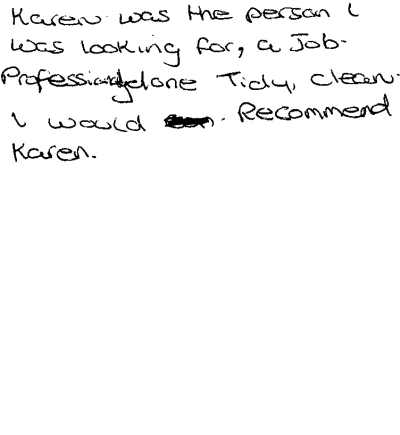 Karen was the person I
was looking for, a Job.
Professionally done Tidy, clean.
I would . Recommend
Karen.